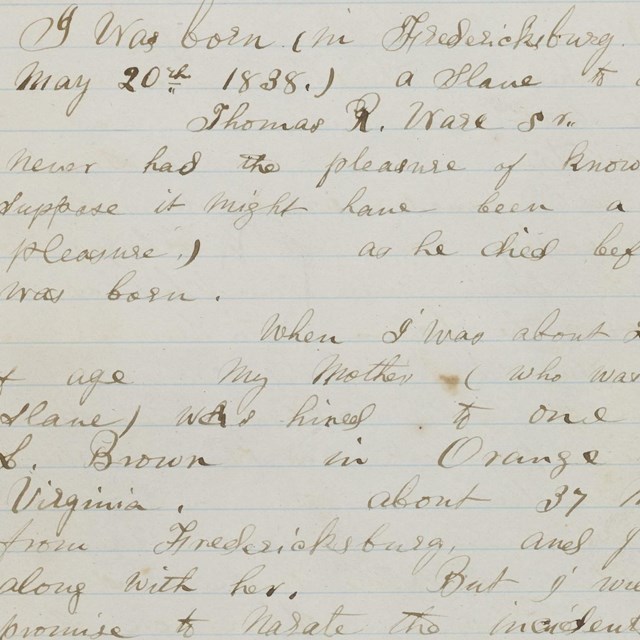 I Was born (in Fredericksburg.
May 20th 1838.) a Slave to
Thomas R. Ware Sr.
Never had the pleasure of know
suppose it might have been a
pleasure,) as he died bef
was born.
When I was about
of age My Mother (who was
slave) was hired to one
L. Brown in Orange
Virginia. about 37
from Fredericksburg, and I
along with her. But I
promise to Narate the incident